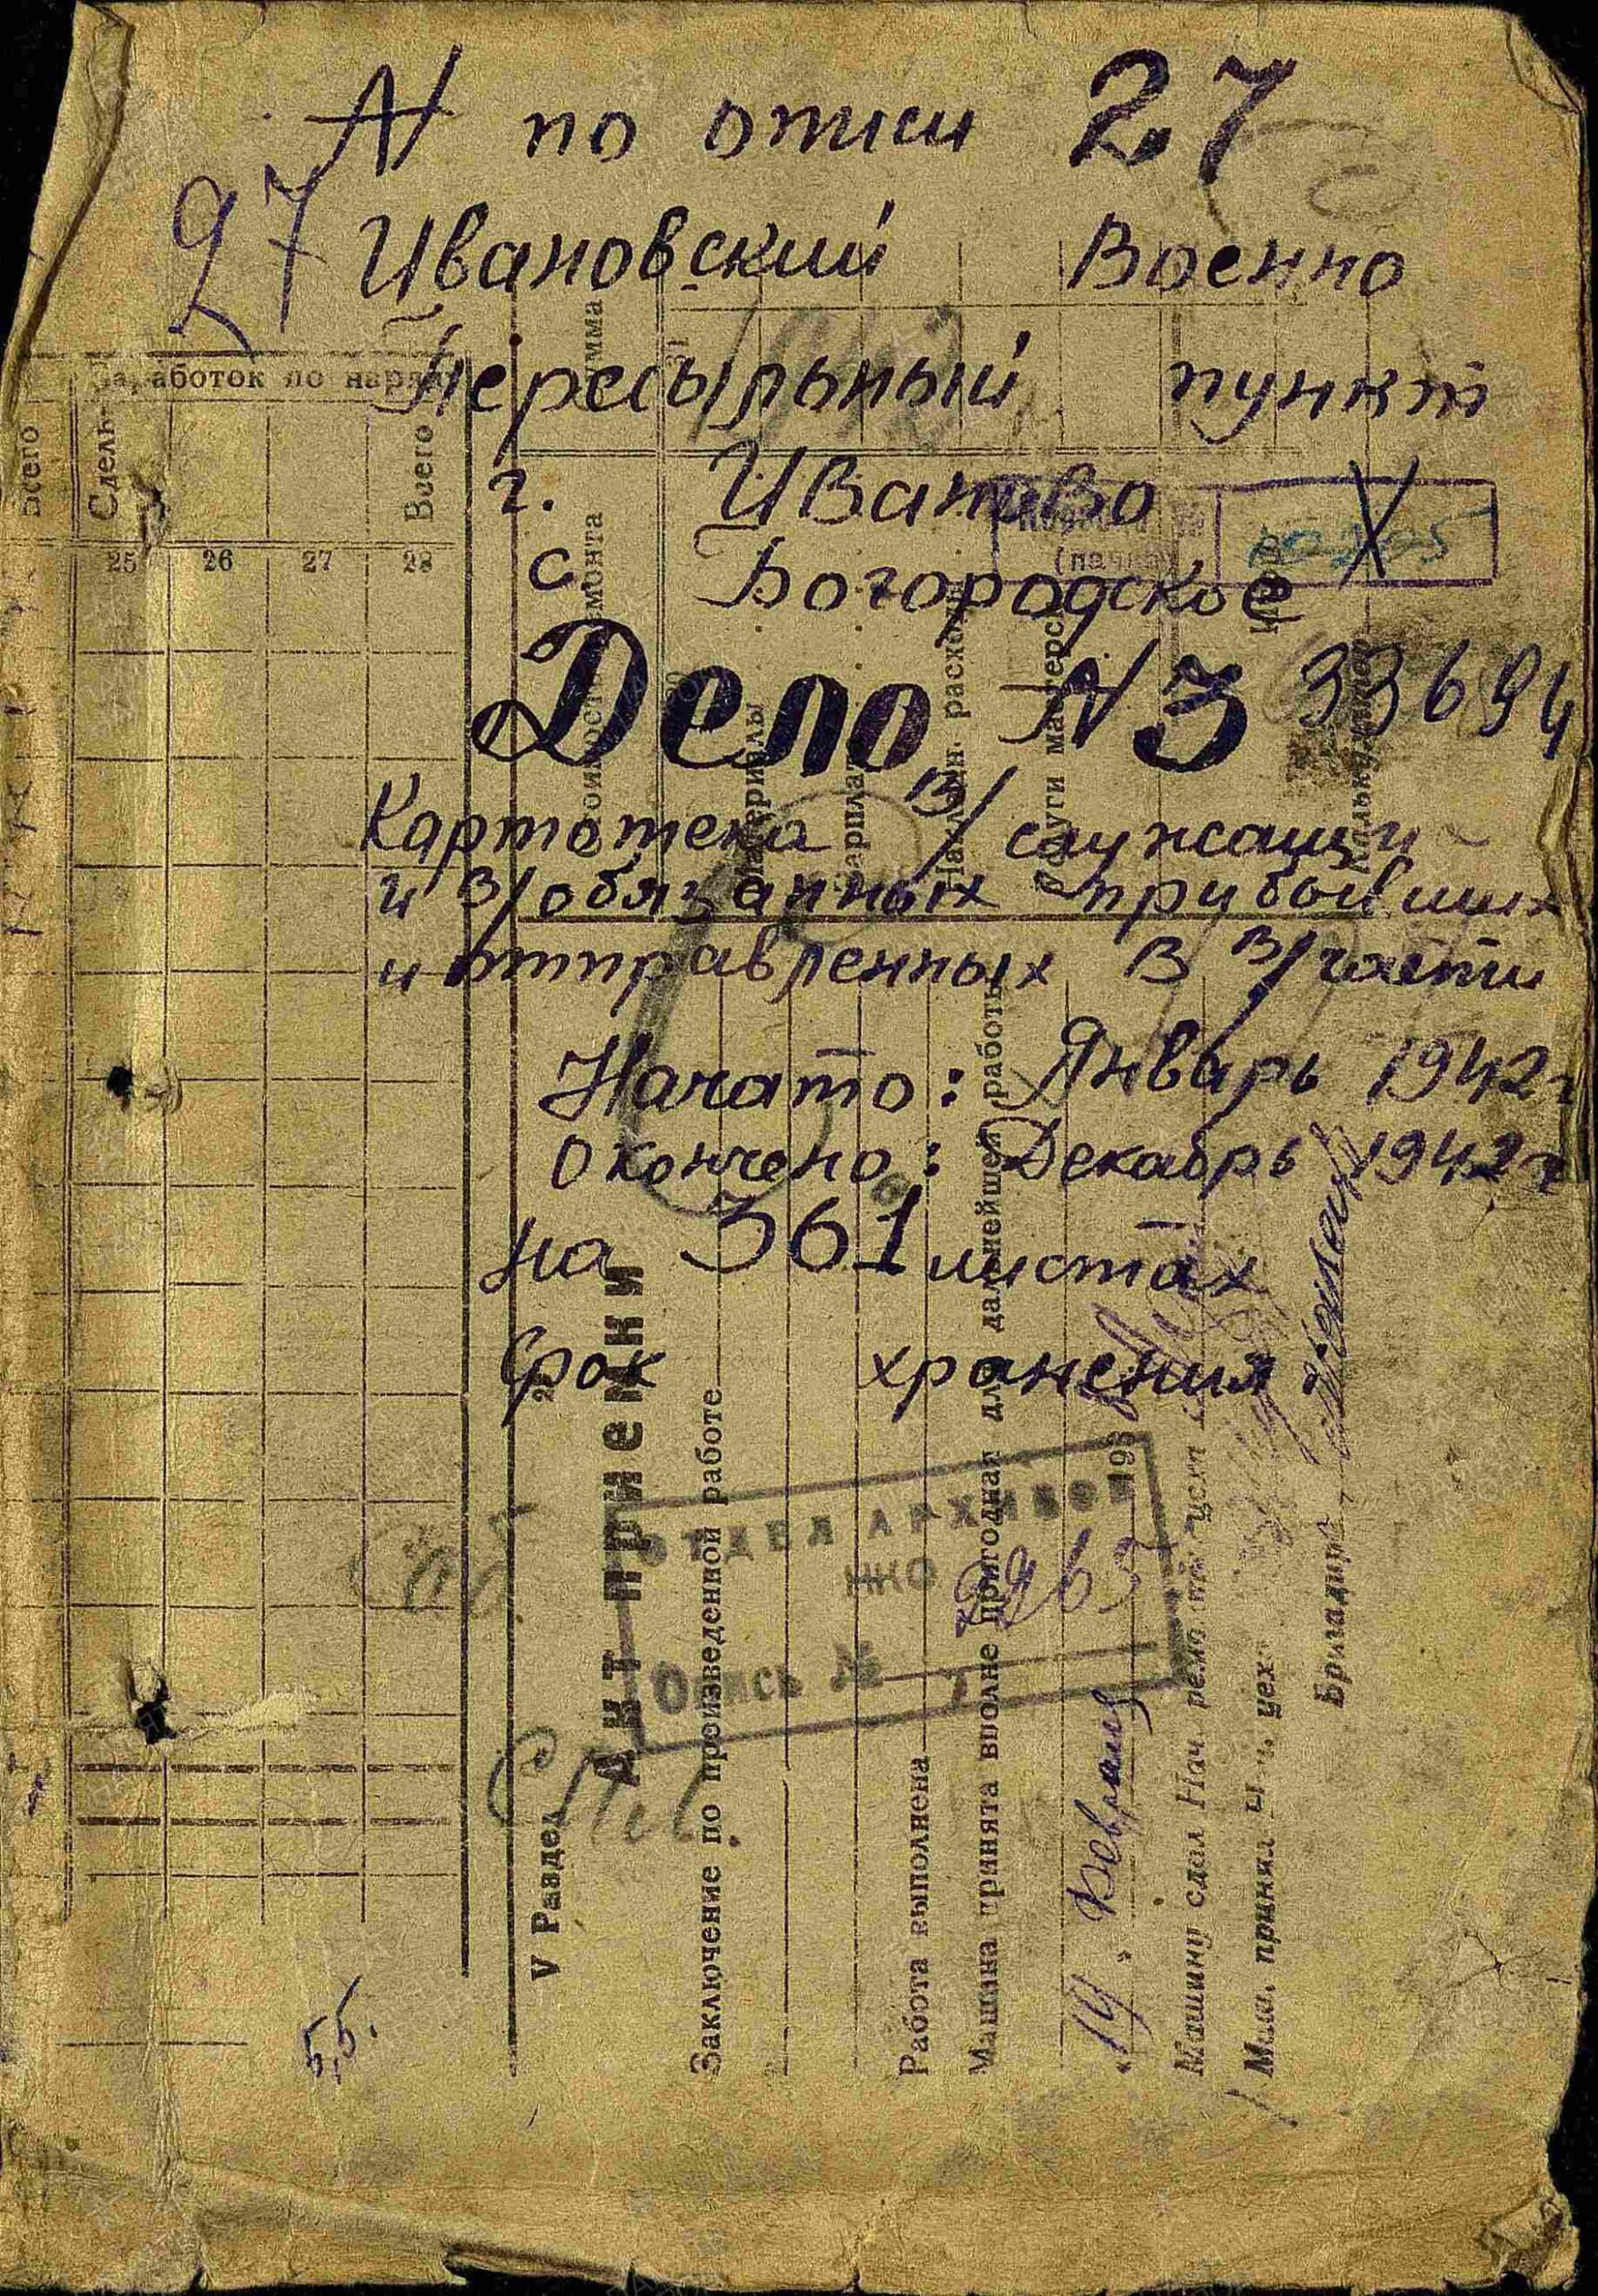 N по описи 27
27
Ивановский Военно
Пересыльный пункт
г. Иваново
с Богородское
Дело N 3 33694
Картотека в/служащи
и в/обязанных прибывших
и отправленных в в/части
Начато: Январь 1942г
Окончено: Декабрь 1942г
на 361 листах
Срок хранения:
Заработок по наряд
Всего
Сдель
Всего
25 26 27 28
(пачка)
ОТДЕЛ АРХИВОВ
НКО
Опись №
V Раздел
Акт приемки
Заключение по произведенной работе
Работа выполнена
Машина принята вполне пригодная для дальнейшей работы
"14" Февраля 193
Машину сдал Нач.
Маш. принял Н-к цех.
Бригадир
Материалы
Зарплата
Накладн. расходы
Услуги мастерск
Калькулятор
55.